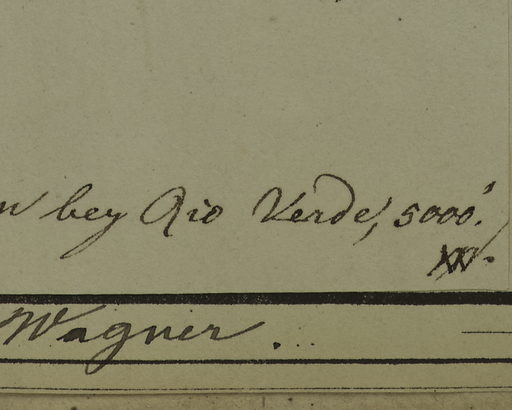 bey Rio Verde, 5000'.
Wagner...